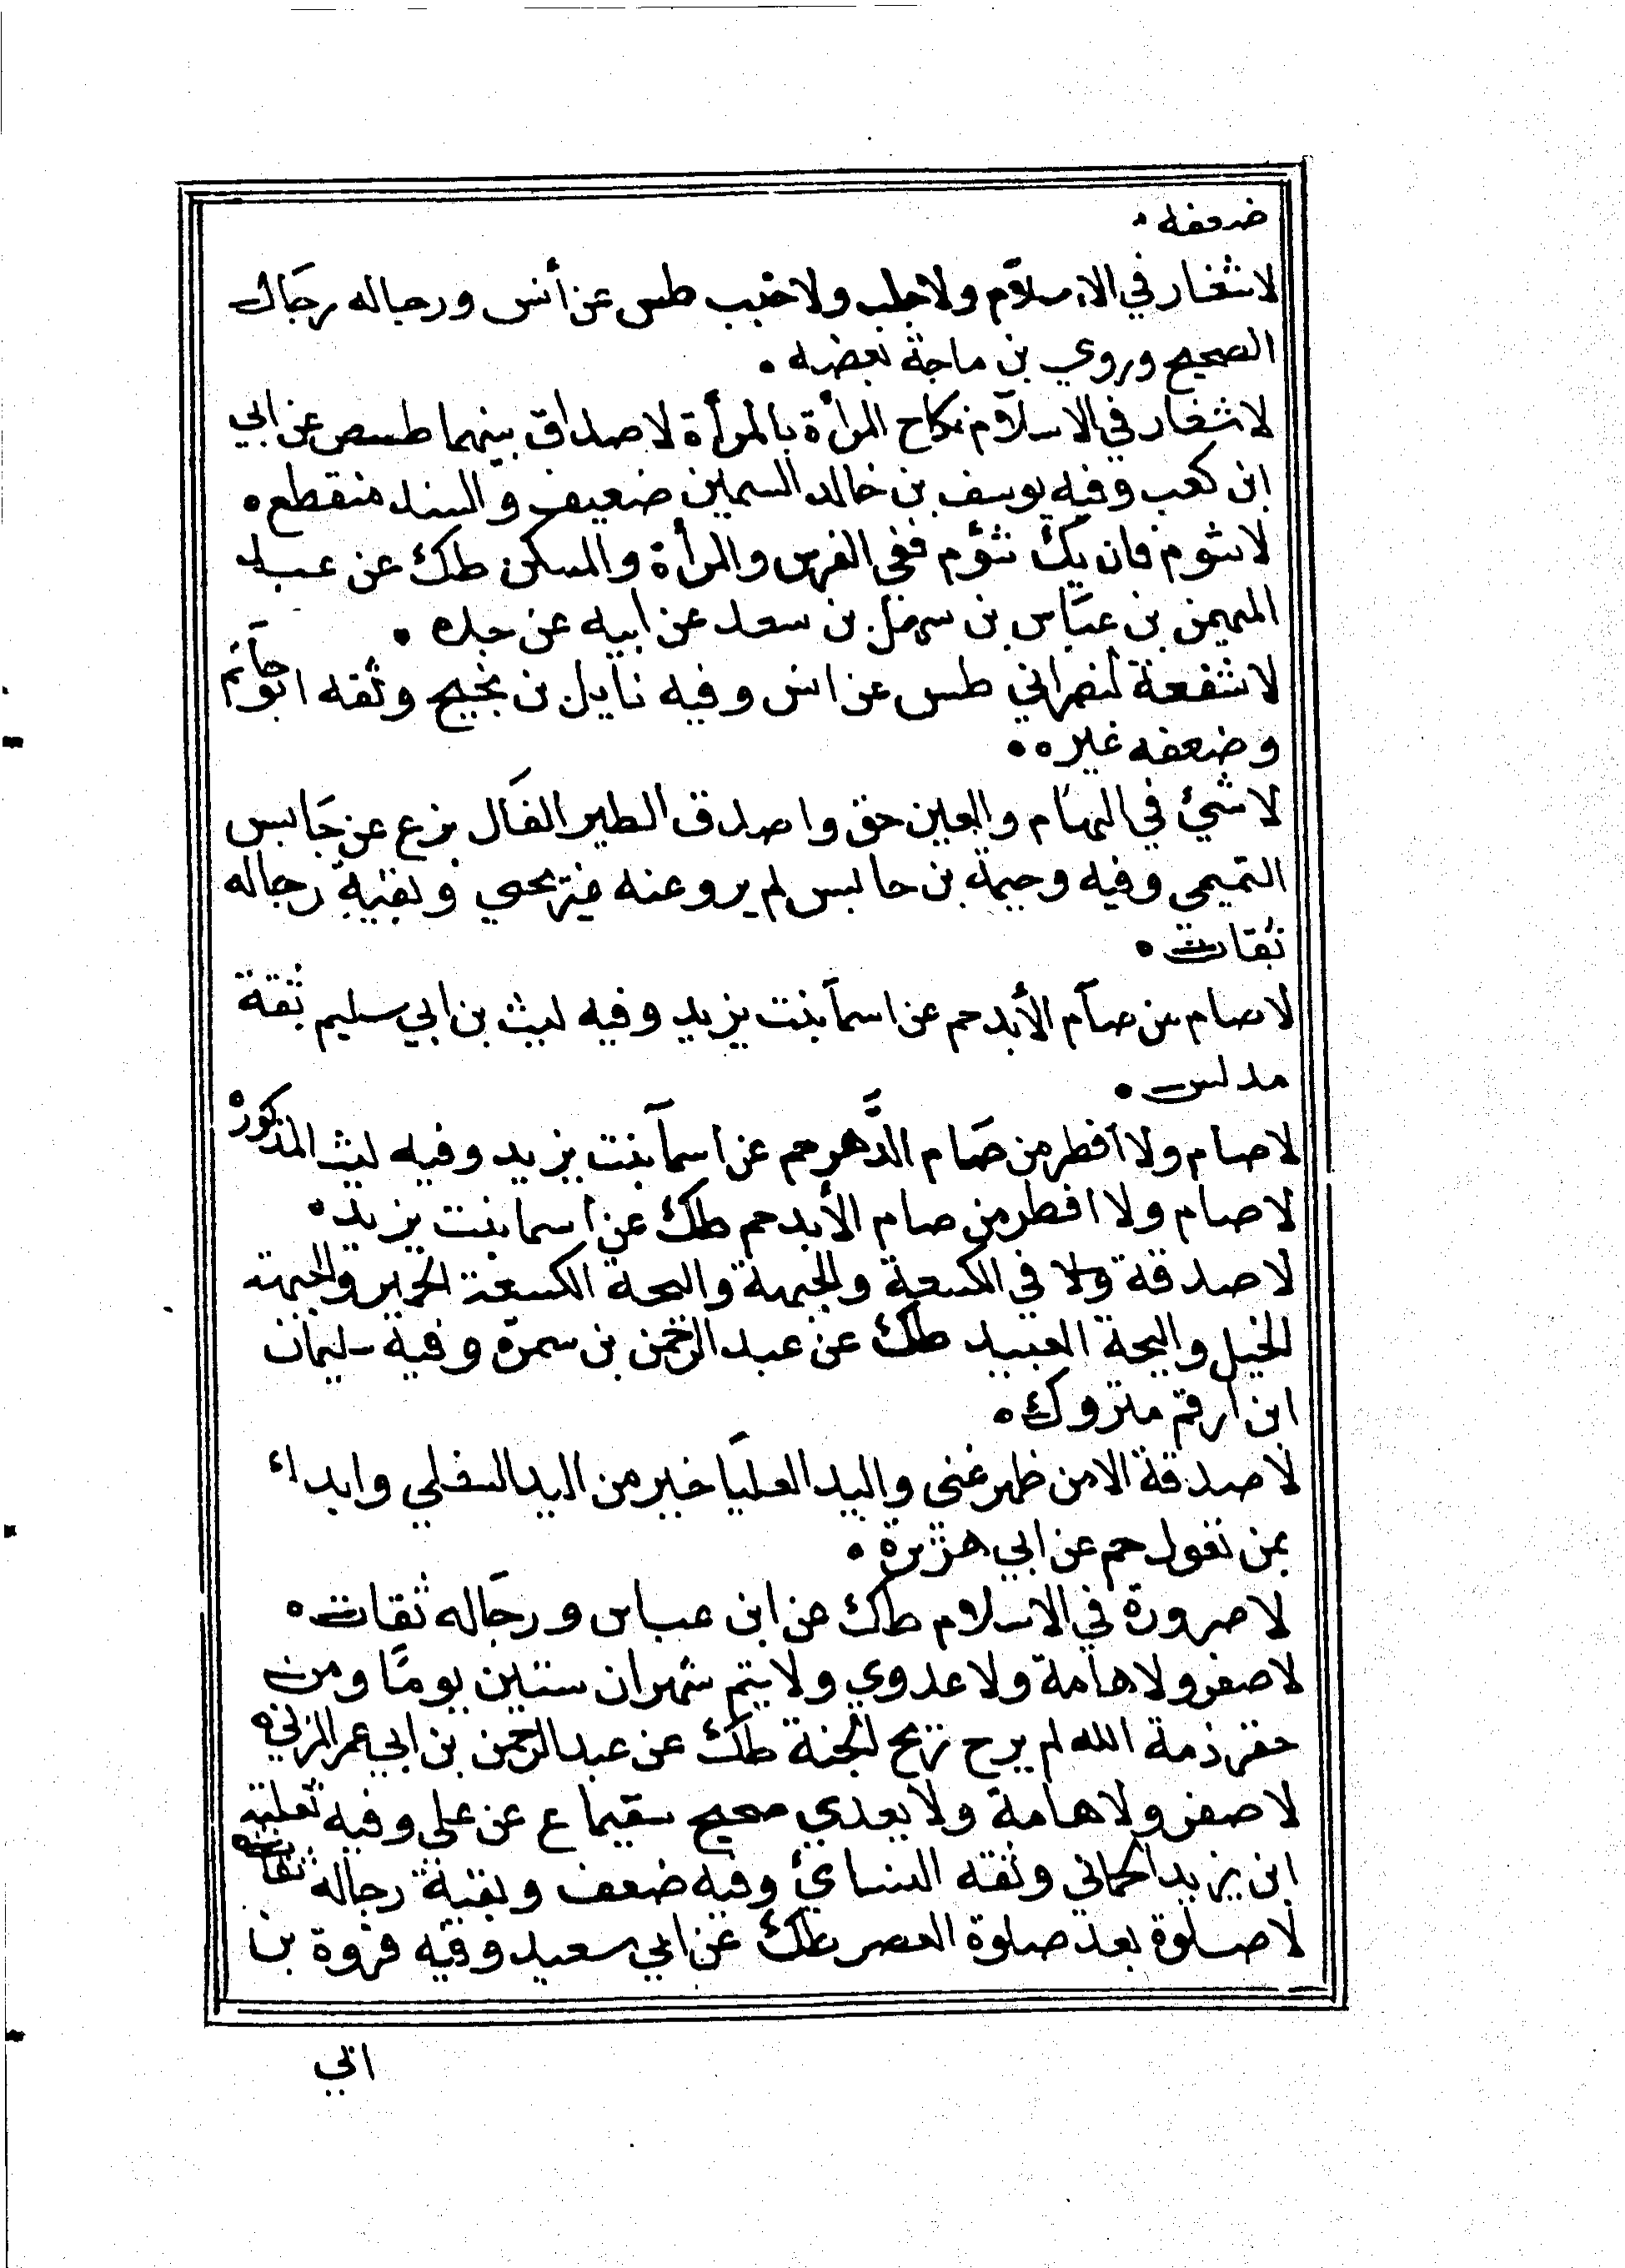 ضعفه •
لا شغار في الاسلام ولا جلب ولا جنب طس عن أنس ورجاله رجال
الصحيح وروي بن ماجة بعضه •
لا شغار في الاسلام نكاح المرأة بالمرأة لا صداق بينهما طسص عن ابي
ابن كعب وفيه يوسف بن خالد السمين ضعيف والسند منقطع •
لا شوم فان يك شؤم ففي الفرس والمرأة والمسكن طك عن عبد
المهيمن بن عباس بن سهل بن سعد عن ابيه عن جده •
لا شفعة لنصراني طس عن انس وفيه نايل بن نجيح وثقه ابو حاتم
وضعفه غيره •
لا شيئ في الهام والعين حق واصدق الطير الفال بزع عن حابس
التميمي وفيه وحيمة بن حابس لم يرو عنه غير يحيى وبقية رجاله
ثقات •
لا صام من صام الأبد حم عن اسما بنت يزيد وفيه ليث بن ابي سليم ثقة
مدلس •
لا صام ولا افطر من صام الدهر حم عن اسما بنت يزيد وفيه ليث المذكور •
لا صام ولا افطر من صام الأبد حم طك عن اسما بنت يزيد •
لا صدقة ولا في الكسعة والجبهة والنحة الكسعة الحمير والجبهة
الخيل والنحة العبيد طك عن عبد الرحمن بن سمرة وفيه سليمان
ابن ارقم متروك •
لا صدقة الا من ظهر غني واليد العليا خير من اليد السفلي وابداء
بمن تعول حم عن ابي هريرة •
لا صرورة في الاسلام طك عن ابن عباس ورجاله ثقات •
لا صفر ولا هامة ولا عدوي ولا يتم شهران ستين يوما ومن
حقر ذمة الله لم يرح ريح الجنة طك عن عبد الرحمن بن ابي عمر المزني •
لا صفر ولا هامة ولا يعدي صحيح سقيما ع عن علي وفيه ثعلبة
ابن يزيد الحماني وثقه النسائ وفيه ضعف وبقية رجاله ثقات •
لا صلوة بعد صلوة العصر طك عن ابي سعيد وفيه فروة بن
ابي